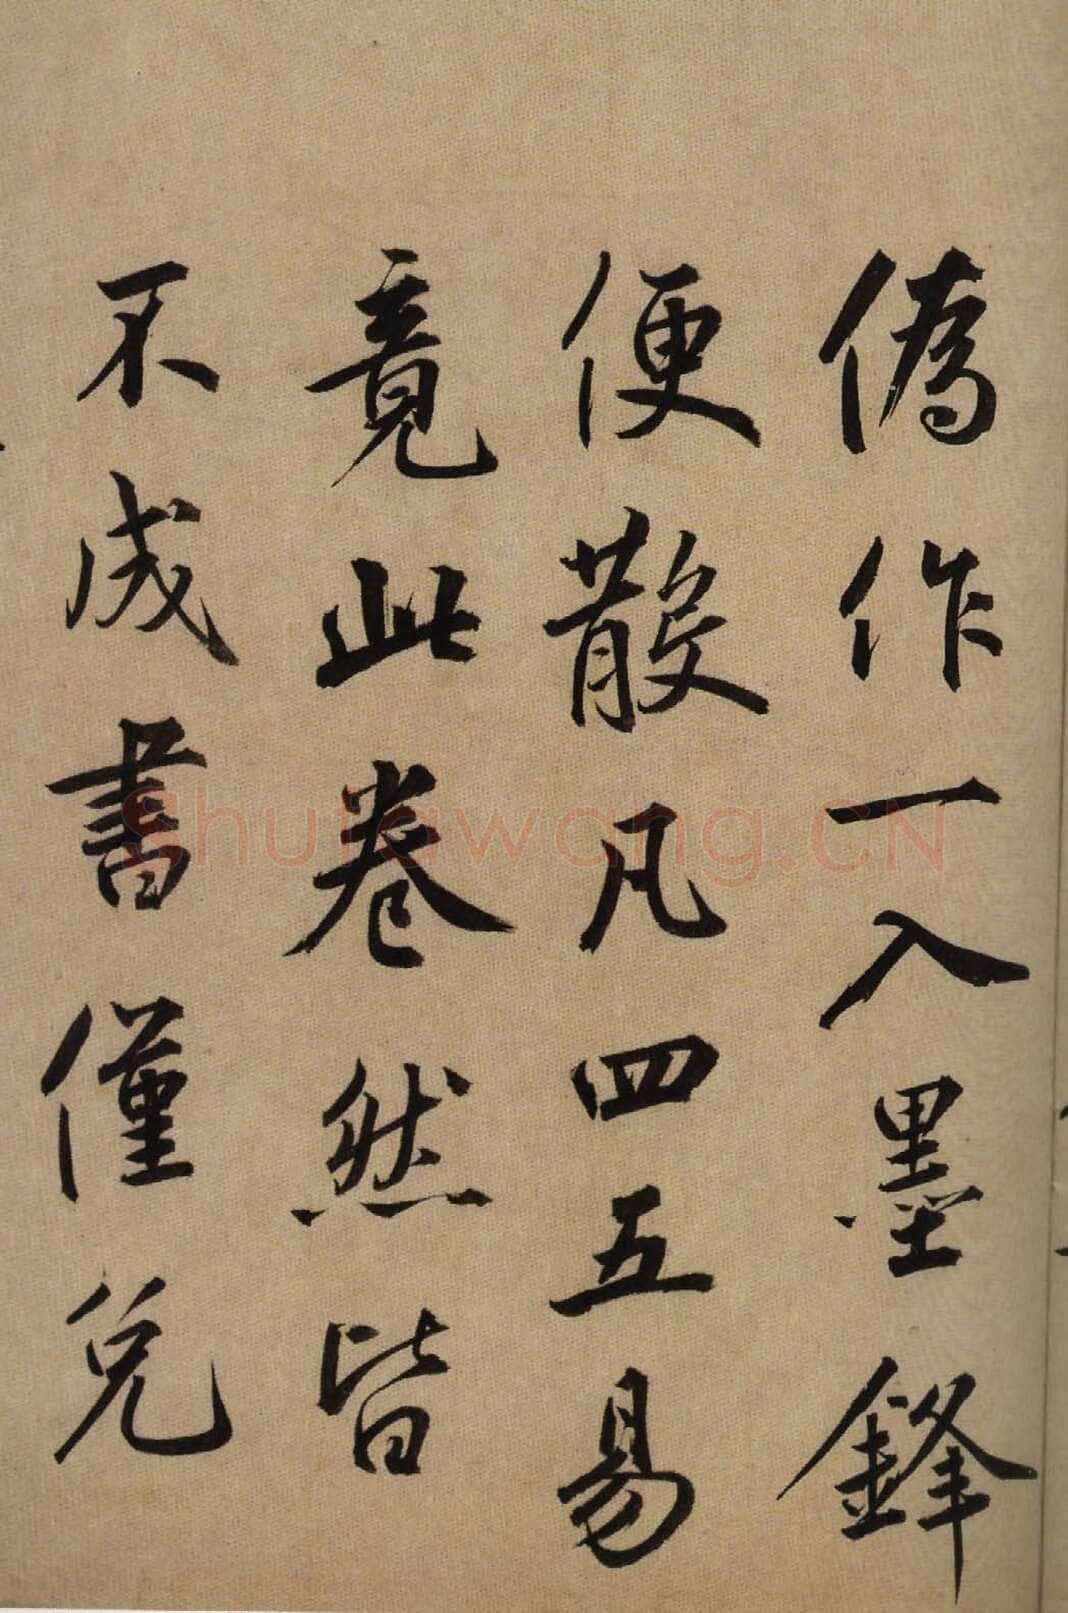 偽作一入墨鋒
便散凡四五易
竟此卷然皆
不成書僅免
Shufawang.CN